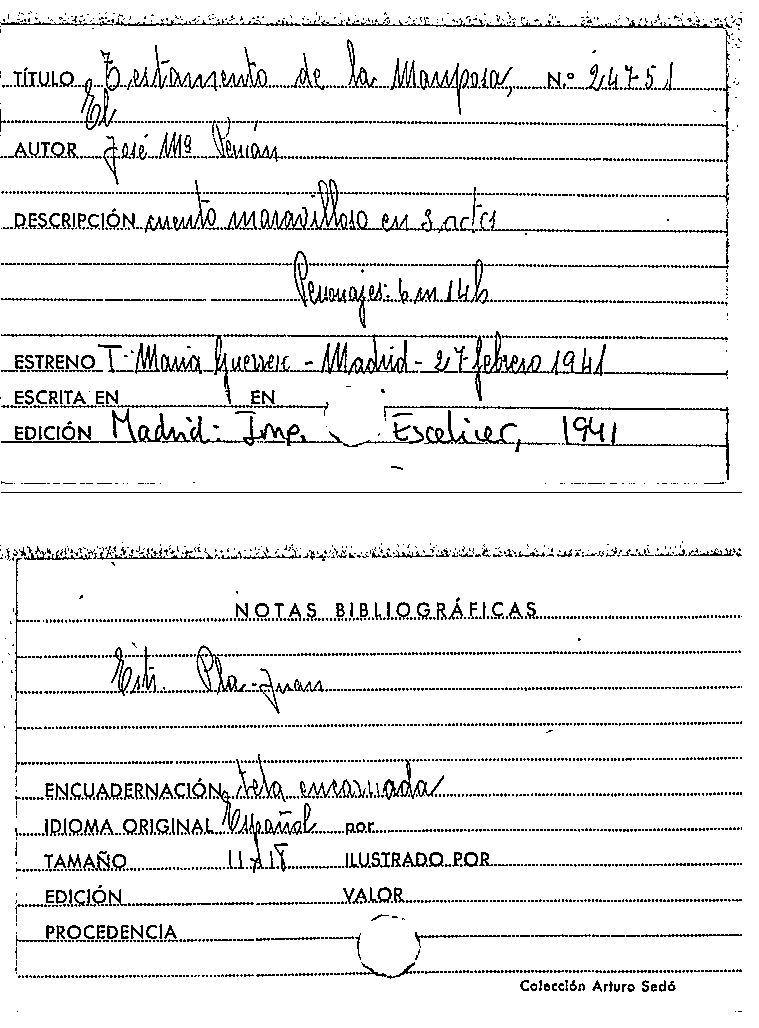 TÍTULO Testamento de la Mariposa, N.º 24751
El
AUTOR José Mª Pemán
DESCRIPCIÓN cuento maravilloso en 3 actos
Personajes: 6 m 14 h
ESTRENO T. María Guerrero - Madrid - 27 febrero 1941
ESCRITA EN EN
EDICIÓN Madrid: Imp. Escelicer, 1941
NOTAS BIBLIOGRÁFICAS
Pla-Juan
ENCUADERNACIÓN tela encarnada
IDIOMA ORIGINAL Español por
TAMAÑO 11x15 ILUSTRADO POR
EDICIÓN VALOR
PROCEDENCIA
Colección Arturo Sedó